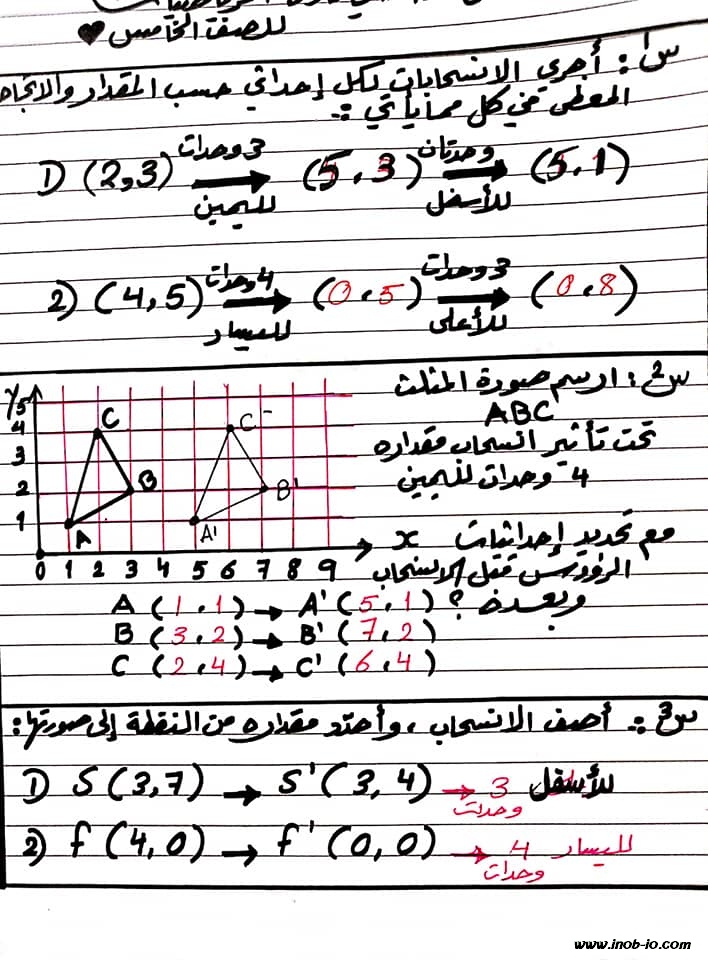 للصف الخامس
س١: أجري الانسحابات لكل إحداثي حسب المقدار والاتجاه
المعطى في كل مما يأتي :-
1) (2,3) 3 وحدات لليمين (5,3) وحدتان للأسفل (5,1)
2) (4,5) 4 وحدات لليسار (0,5) 3 وحدات للأعلى (0,8)
س٢: ارسم صورة المثلث
ABC
تحت تأثير انسحاب مقداره
4 وحدات لليمين
مع تحديد إحداثيات
الرؤوس قبل الانسحاب
وبعده ؟
y 5
4
3
2
1
0 1 2 3 4 5 6 7 8 9 x
C B A
C' B' A'
A (1,1) → A' (5,1)
B (3,2) → B' (7,2)
C (2,4) → C' (6,4)
س٣:- أصف الانسحاب، وأحدد مقداره من النقطة إلى صورتها:
1) S (3,7) → S' (3,4) → 3 وحدات للأسفل
2) f (4,0) → f' (0,0) → 4 وحدات لليسار
www.inob-io.com